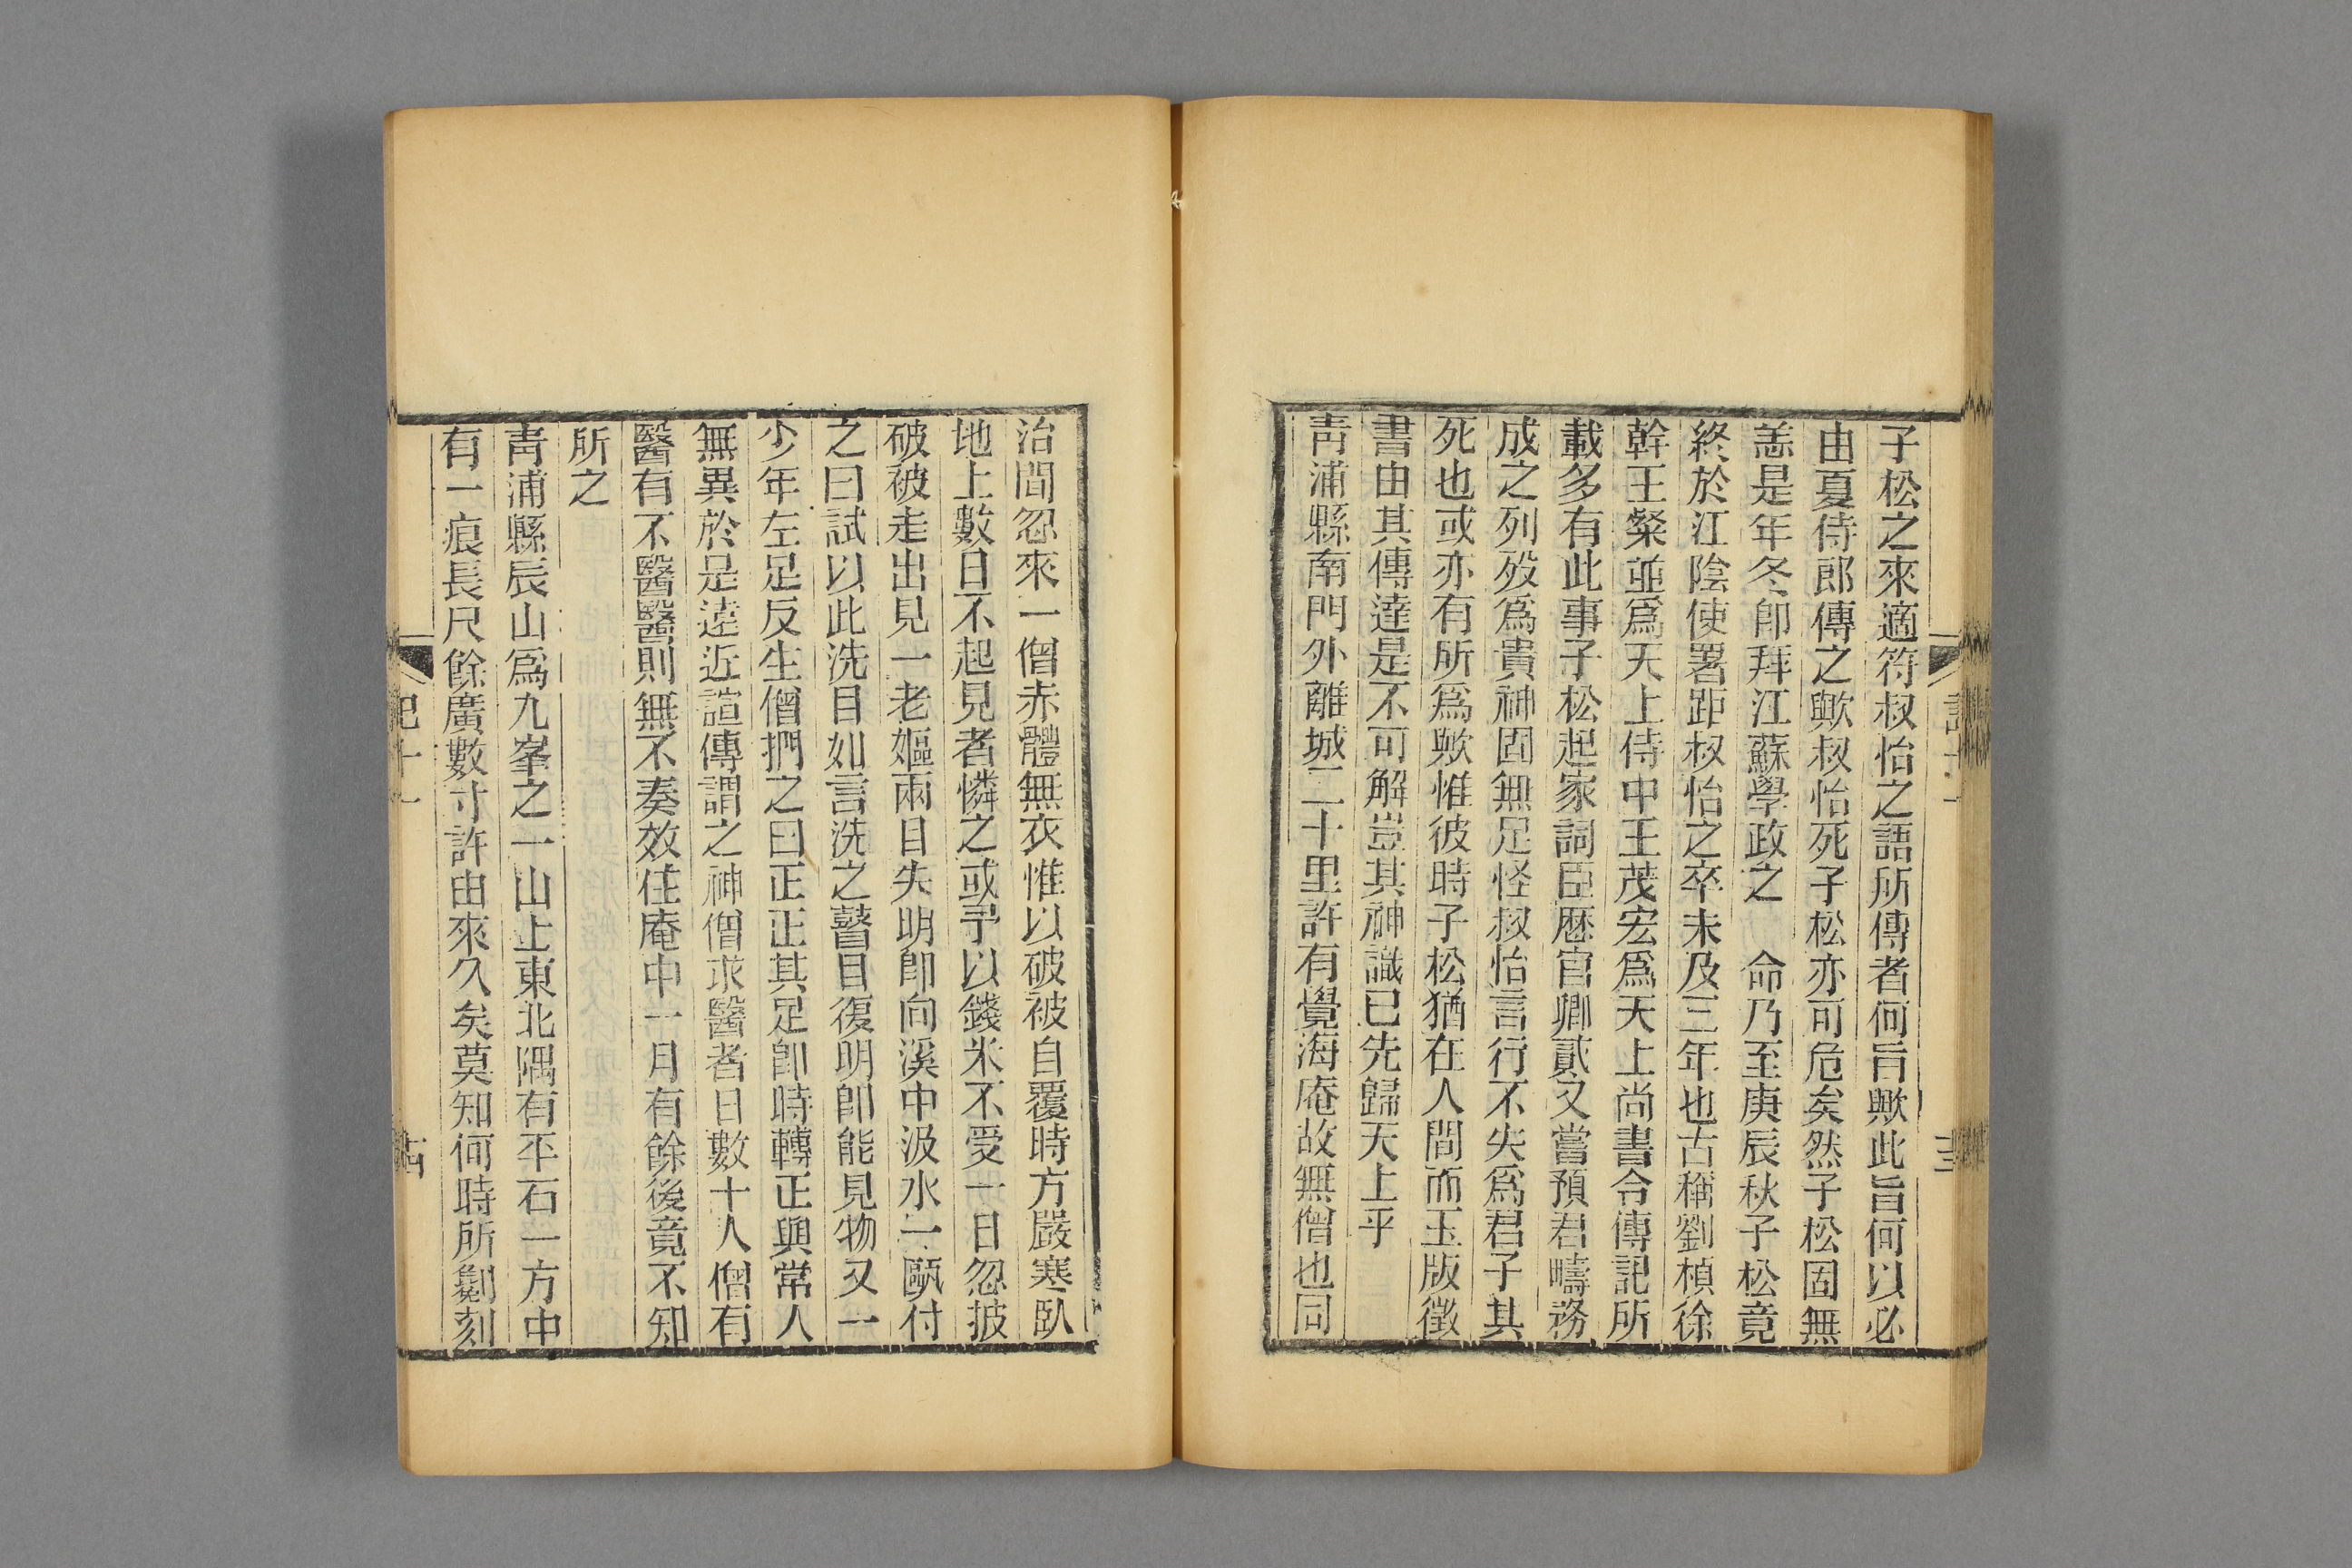 子松之來適符叔怡之語所傳者何旨歟此旨何以必
由夏侍郎傳之歟叔怡死子松亦可危矣然子松固無
恙是年冬卽拜江蘇學政之　命乃至庚辰秋子松竟
終於江陰使署距叔怡之卒未及三年也古稱劉楨徐
幹王粲並爲天上侍中王茂宏爲天上尚書令傳記所
載多有此事子松起家詞臣歷官卿貳又嘗預君疇務
成之列歿爲貴神固無足怪叔怡言行不失爲君子其
死也或亦有所爲歟惟彼時子松猶在人間而玉版徵
書由其傳達是不可解豈其神識已先歸天上乎
靑浦縣南門外離城二十里許有覺海庵故無僧也同
治間忽來一僧赤體無衣惟以破被自覆時方嚴寒臥
地上數日不起見者憐之或予以錢米不受一日忽披
破被走出見一老嫗兩目失明卽向溪中汲水一甌付
之曰試以此洗目如言洗之瞽目復明卽能見物又一
少年左足反生僧捫之曰正正其足卽時轉正與常人
無異於是遠近諠傳謂之神僧求醫者日數十人僧有
醫有不醫醫則無不奏效住庵中一月有餘後竟不知
所之
靑浦縣辰山爲九峯之一山上東北隅有平石一方中
有一痕長尺餘廣數寸許由來久矣莫知何時所劖刻
記十一